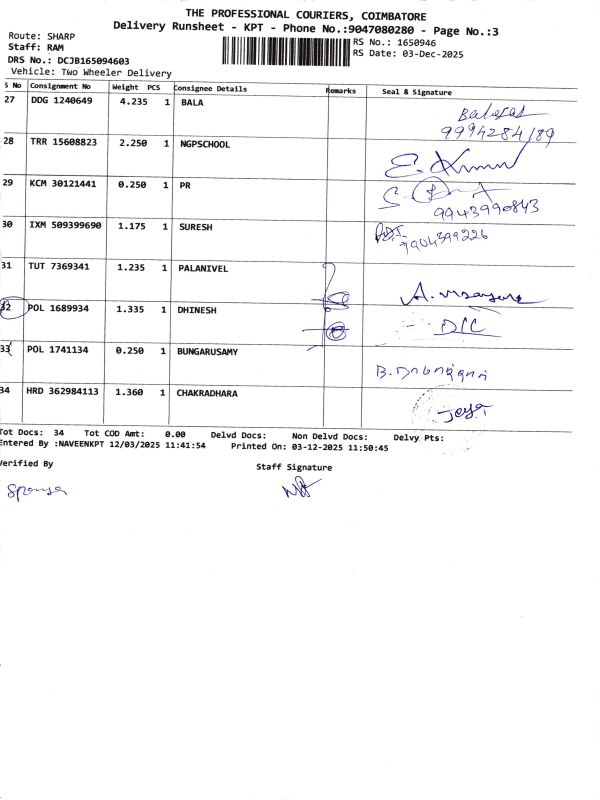 THE PROFESSIONAL COURIERS, COIMBATORE
Delivery Runsheet - KPT - Phone No.:9047080280 - Page No.:3
Route: SHARP
RS No.: 1650946
Staff: RAM
RS Date: 03-Dec-2025
DRS No.: DCJB165094603
Vehicle: Two Wheeler Delivery
S No Consignment No Weight PCS Consignee Details Remarks Seal & Signature
27 DDG 1240649 4.235 1 BALA
9994284189
28 TRR 15608823 2.250 1 NGPSCHOOL
E. Kumar
29 KCM 30121441 0.250 1 PR
9943990843
30 IXM 509399690 1.175 1 SURESH
9904399226
31 TUT 7369341 1.235 1 PALANIVEL
32 POL 1689934 1.335 1 DHINESH
DIC
33 POL 1741134 0.250 1 BUNGARUSAMY
34 HRD 362984113 1.360 1 CHAKRADHARA
Jeya
Tot Docs: 34 Tot COD Amt: 0.00 Delvd Docs: Non Delvd Docs: Delvy Pts:
Entered By :NAVEENKPT 12/03/2025 11:41:54 Printed On: 03-12-2025 11:50:45
Verified By Staff Signature